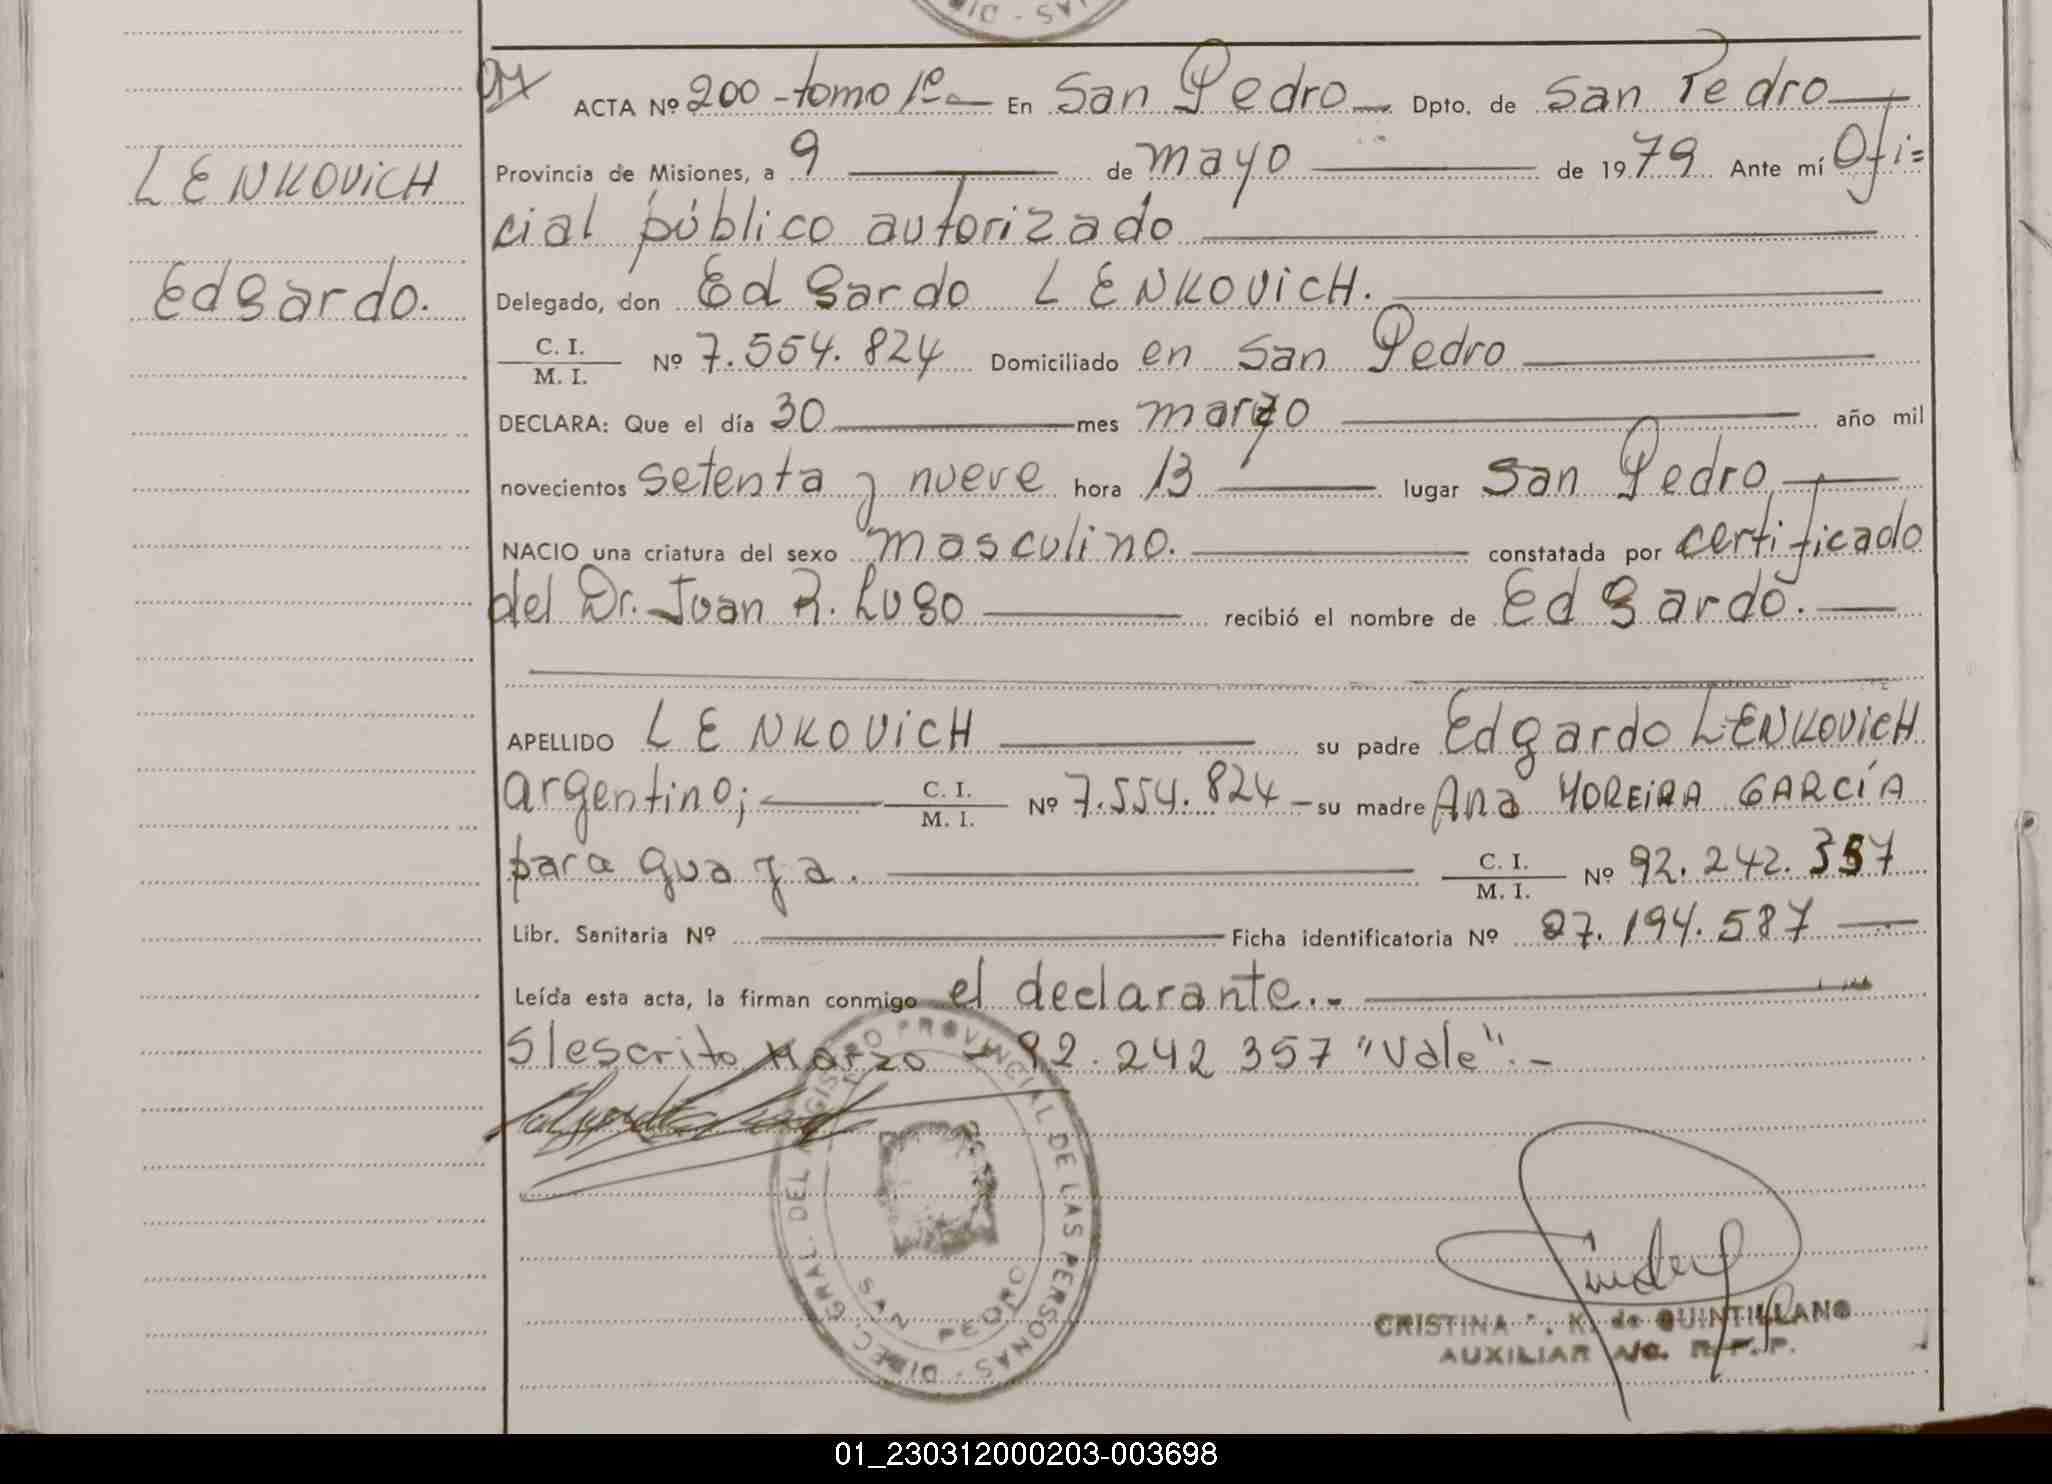 DIR - S
ACTA Nº 200 - tomo 1º - En San Pedro Dpto. de San Pedro
LENKOVICH
Provincia de Misiones, a 9 de mayo de 1979 Ante mí Ofi=
cial público autorizado
Edgardo.
Delegado, don Edgardo LENKOVICH.
C. I. / M. I. Nº 7.554.824 Domiciliado en San Pedro
DECLARA: Que el día 30 mes marzo año mil
novecientos setenta y nueve hora 13 lugar San Pedro
NACIO una criatura del sexo masculino. constatada por certificado
del Dr. Juan R. Lugo recibió el nombre de Edgardo.
APELLIDO LENKOVICH su padre Edgardo LENKOVICH
argentino; C. I. / M. I. Nº 7.554.824 - su madre Ana MOREIRA GARCÍA
paraguaya. C. I. / M. I. Nº 92.242.357
Libr. Sanitaria Nº Ficha identificatoria Nº 27.194.587
Leída esta acta, la firman conmigo el declarante.-
S/escrito Marzo - 92.242357 "Vale".-
DIREC. GRAL. DEL REGISTRO PROVINCIAL DE LAS PERSONAS -
SAN PEDRO
CRISTINA K. de QUINTILLANO
AUXILIAR A/C. R.P.P.
01_230312000203-003698